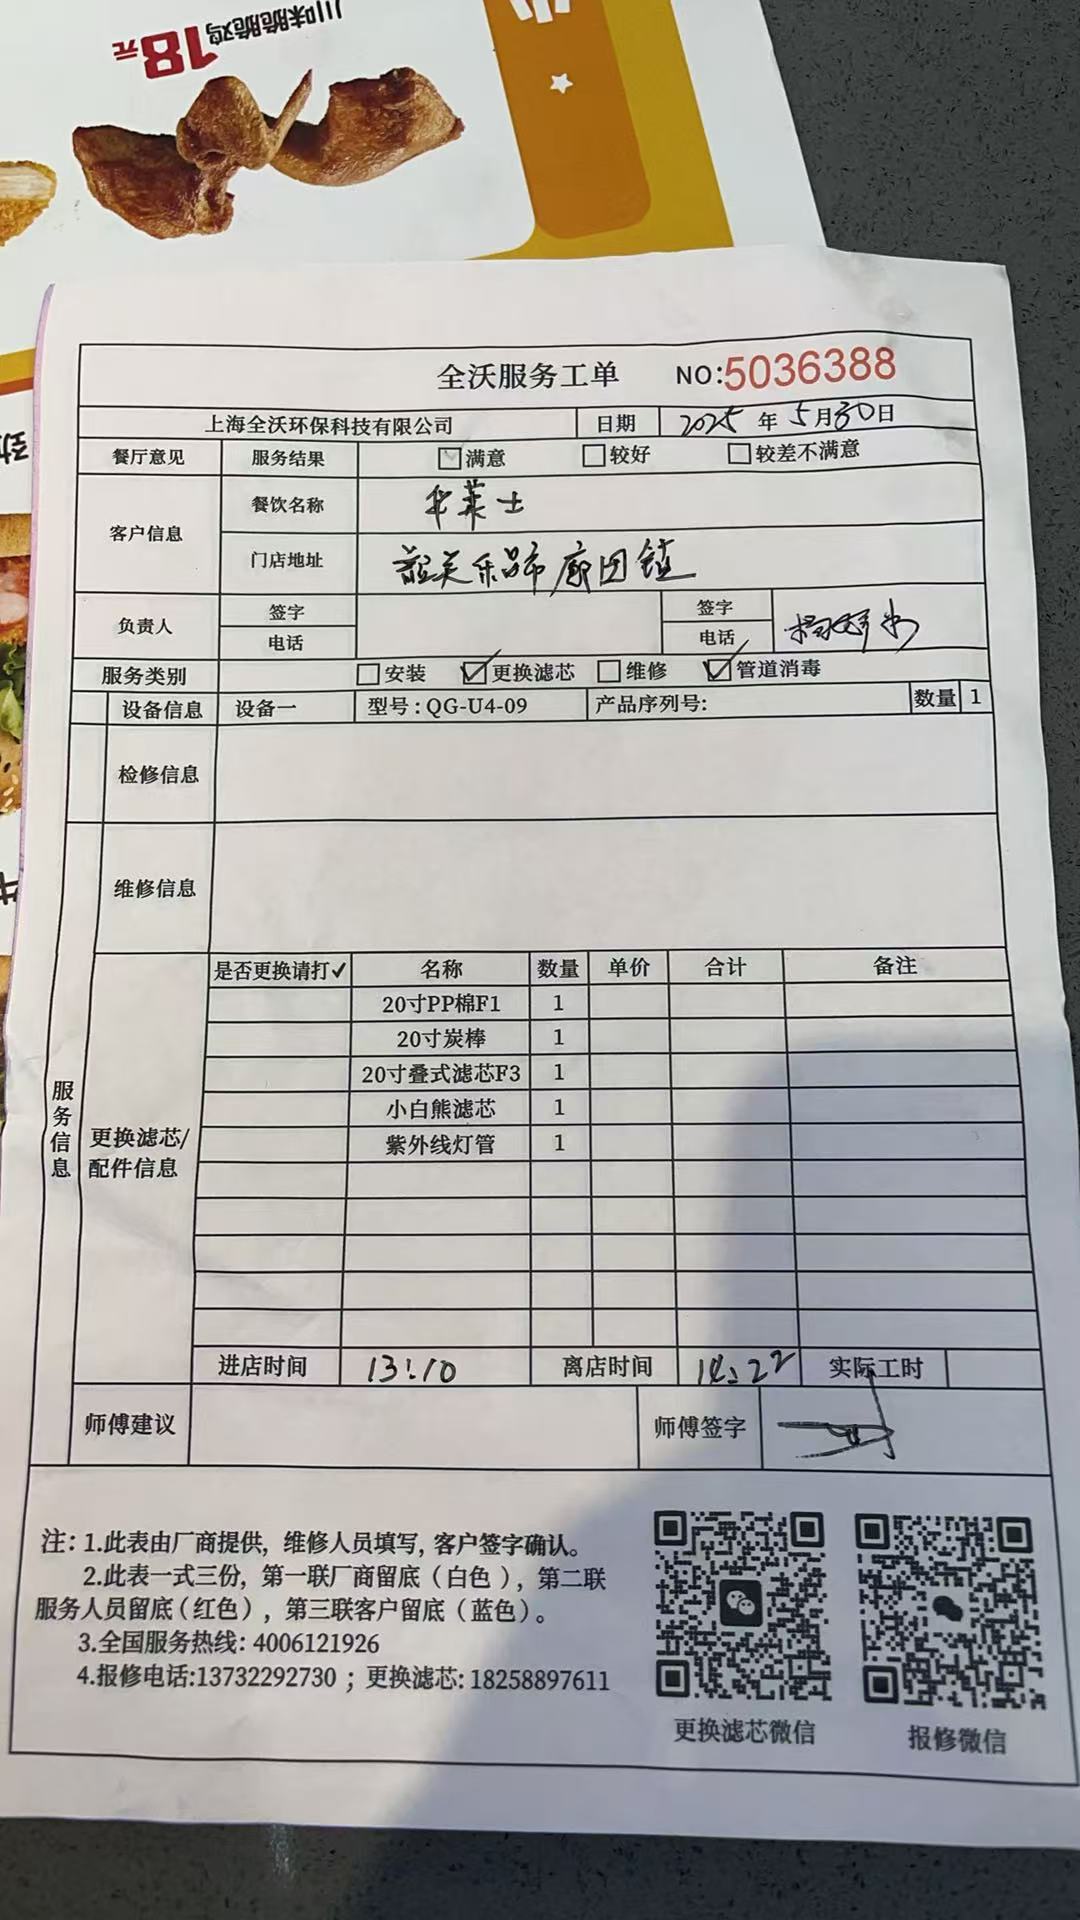 川味脆脆鸡18元
全沃服务工单 NO:5036388
上海全沃环保科技有限公司 日期 2025年5月30日
餐厅意见 服务结果 满意 较好 较差不满意
客户信息 餐饮名称 华莱士
门店地址 韶关乐昌市廊田镇
负责人 签字 签字
电话 电话
服务类别 安装 更换滤芯 维修 管道消毒
设备信息 设备一 型号:QG-U4-09 产品序列号: 数量 1
检修信息
维修信息
服务信息
更换滤芯/
配件信息
是否更换请打✓ 名称 数量 单价 合计 备注
20寸PP棉F1 1
20寸炭棒 1
20寸叠式滤芯F3 1
小白熊滤芯 1
紫外线灯管 1
进店时间 13:10 离店时间 14:22 实际工时
师傅建议 师傅签字
注:1.此表由厂商提供,维修人员填写,客户签字确认。
2.此表一式三份,第一联厂商留底(白色),第二联
服务人员留底(红色),第三联客户留底(蓝色)。
3.全国服务热线:4006121926
4.报修电话:13732292730;更换滤芯:18258897611
更换滤芯微信 报修微信